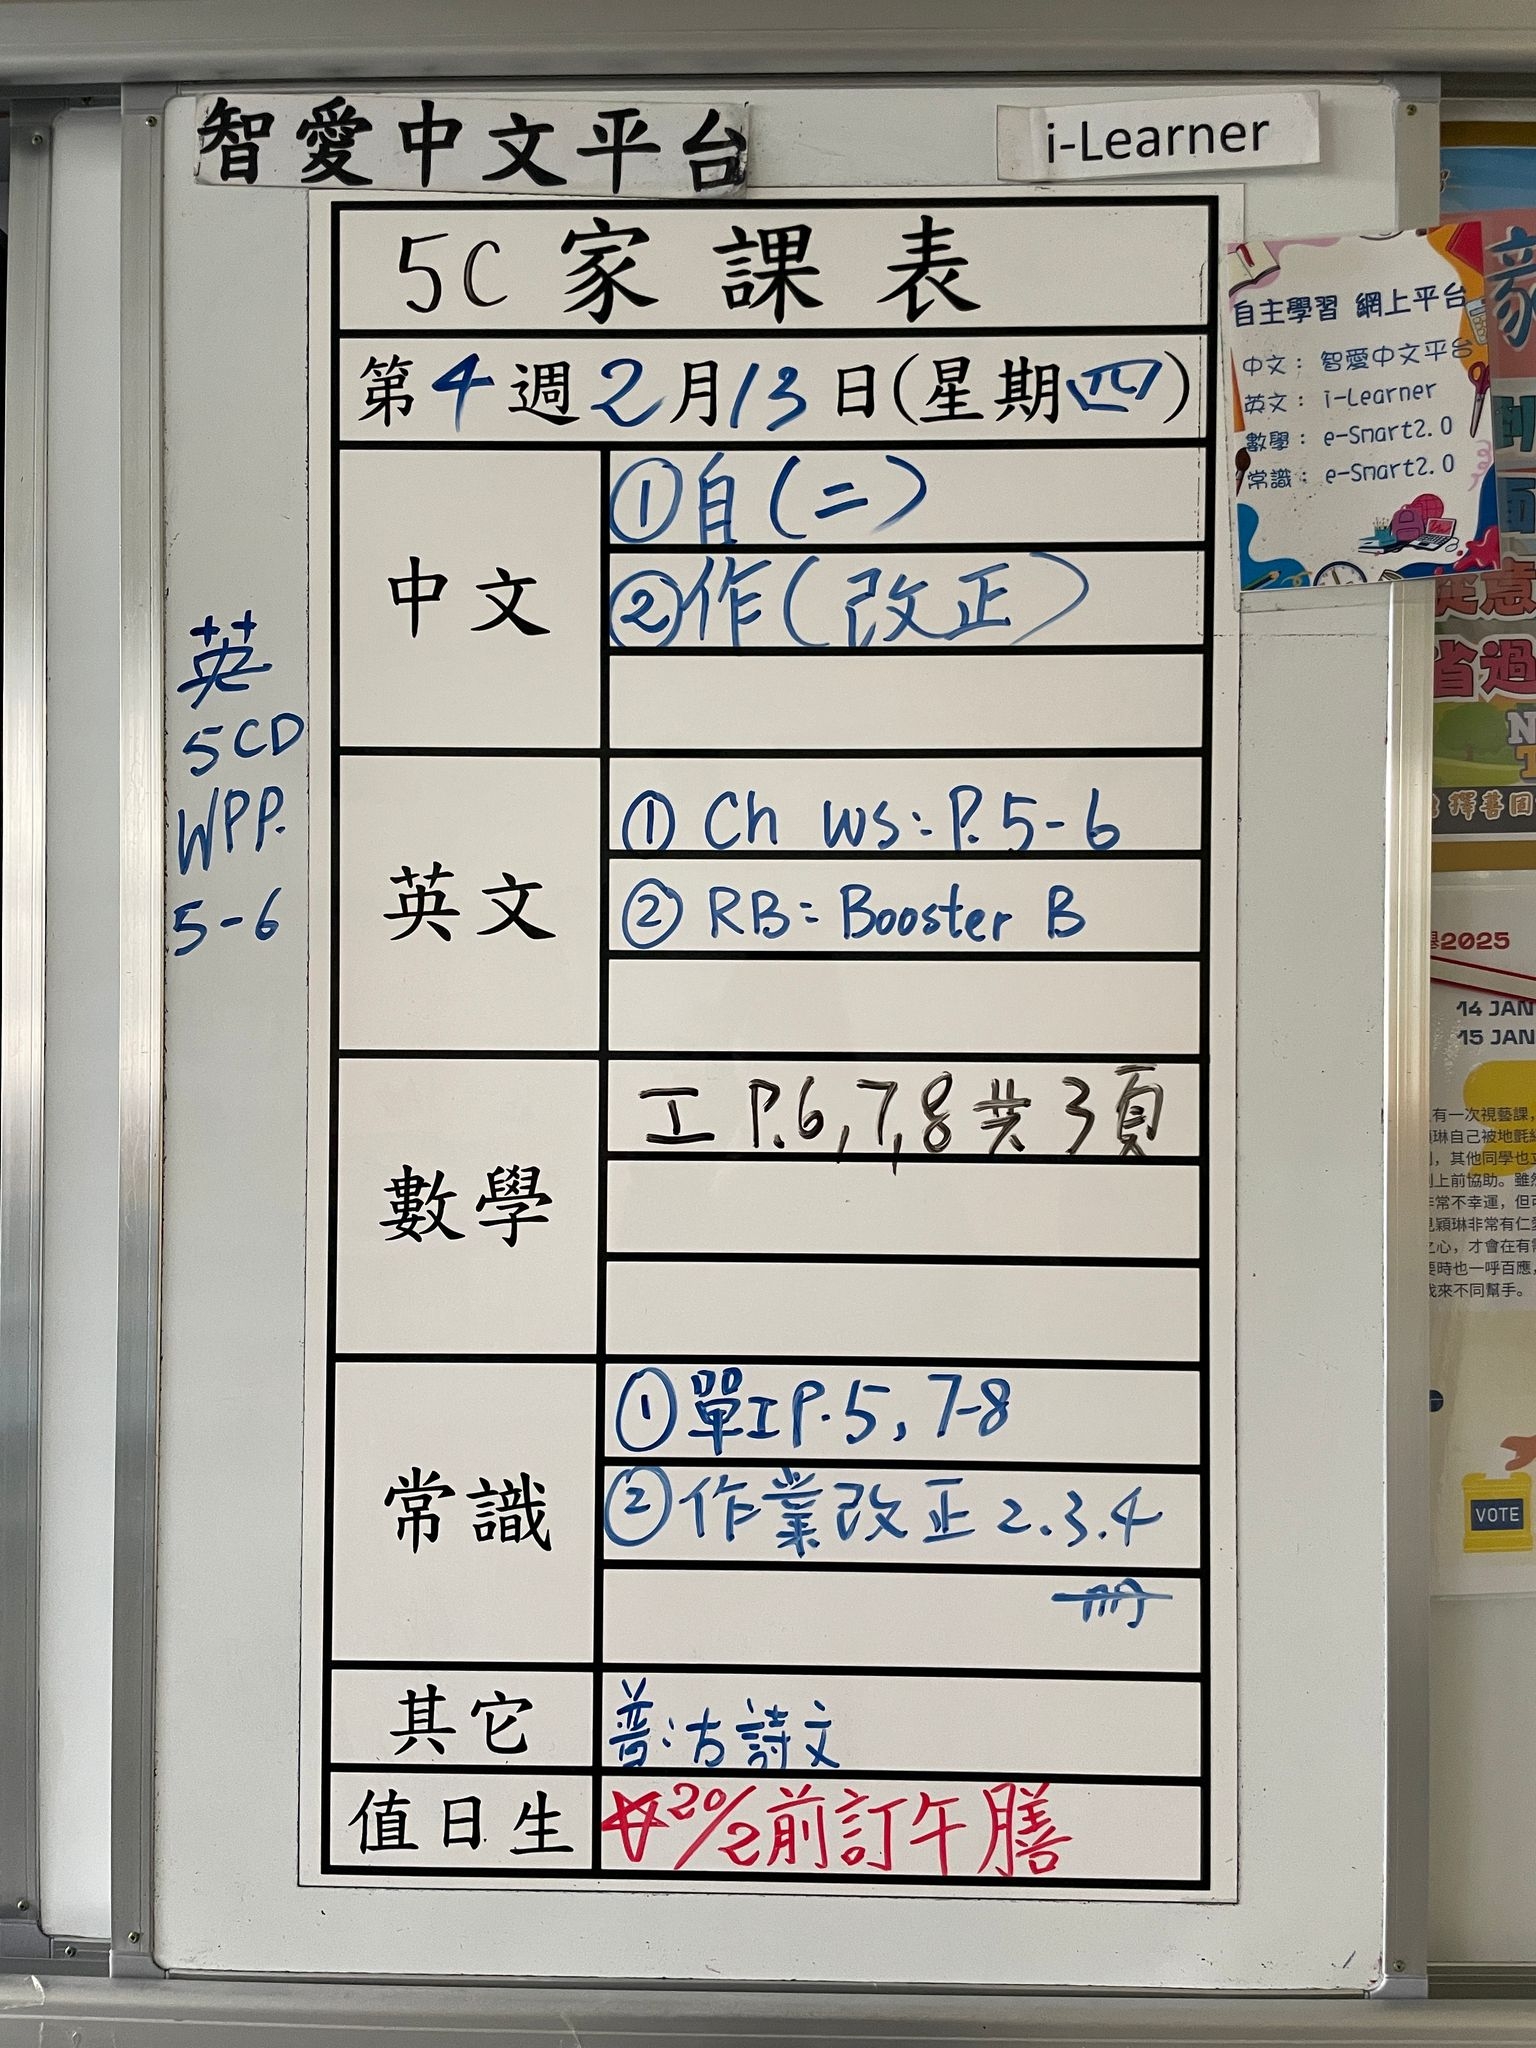 智愛中文平台
i-Learner
5C 家課表
第4週2月13日(星期四)
中文
①自(二)
②作(改正)
英文
① Ch WS: P.5-6
② RB: Booster B
數學
工 P.6,7,8共3頁
常識
①單工P.5, 7-8
②作業改正2.3.4
冊
其它
普:古詩文
值日生
20/2前訂午膳
英
5CD
WPP.
5-6
自主學習 網上平台
中文: 智愛中文平台
英文: i-Learner
數學: e-Smart2.0
常識: e-Smart2.0
省過
擇善固
2025
14 JAN
15 JAN
有一次視藝課,
琳自己被地氈
,其他同學也
上前協助。雖
常不幸運,但
穎琳非常有仁
之心,才會在有
要時也一呼百應,
來不同幫手。
VOTE